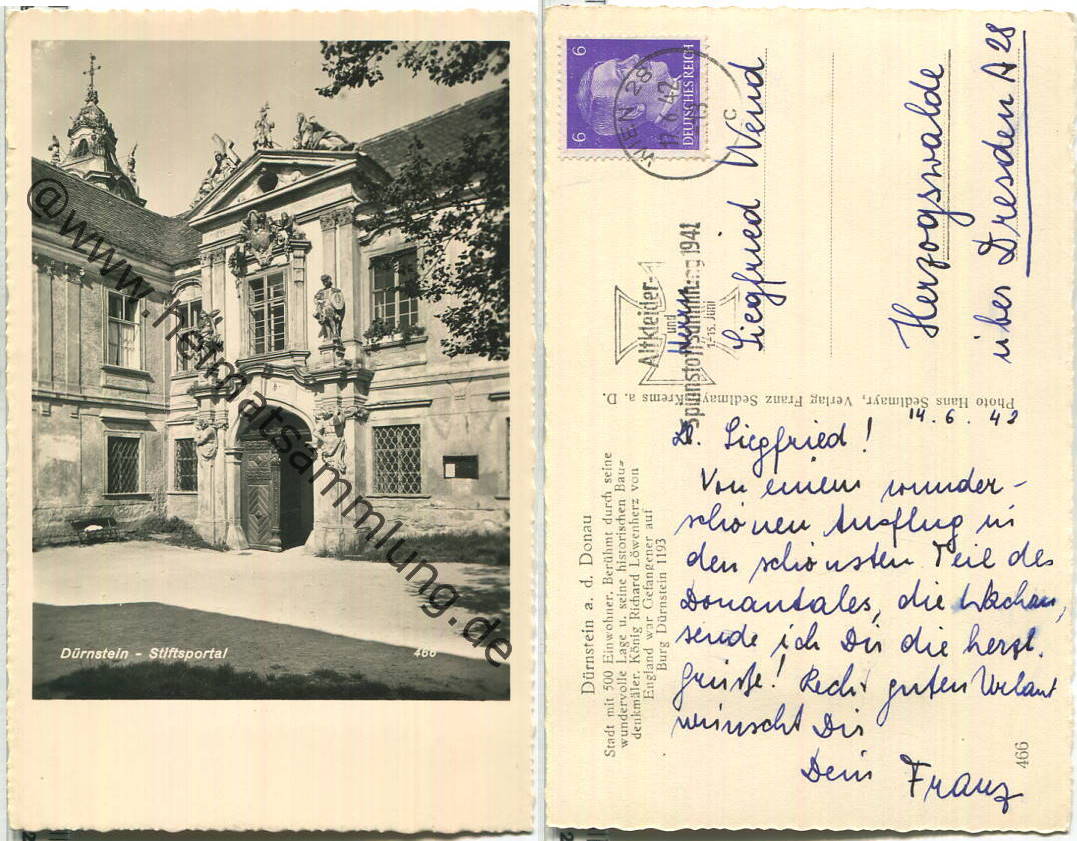 Dürnstein - Stiftsportal
466
@www.heimatsammlung.de
6
6
DEUTSCHES REICH
WIEN 28
17.6.42
19
C
Altkleider-
und
Spinnstoffsammlung 1942
1-15. Juni
Herrn
Siegfried Wend
Herzogswalde
über Dresden A 28
Photo Hans Sedlmayr, Verlag Franz Sedlmayr, Krems a. D.
Dürnstein a. d. Donau
Stadt mit 500 Einwohner. Berühmt durch seine
wundervolle Lage u. seine historischen Bau-
denkmäler. König Richard Löwenherz von
England war Gefangener auf
Burg Dürnstein 1193
14. 6. 42
L. Siegfried!
Von einem wunder-
schönen Ausflug in
den schönsten Teil des
Donautales, die Wachau,
sende ich Dir die herzl.
Grüsse! Recht guten Urlaub
wünscht Dir
Dein Franz
466